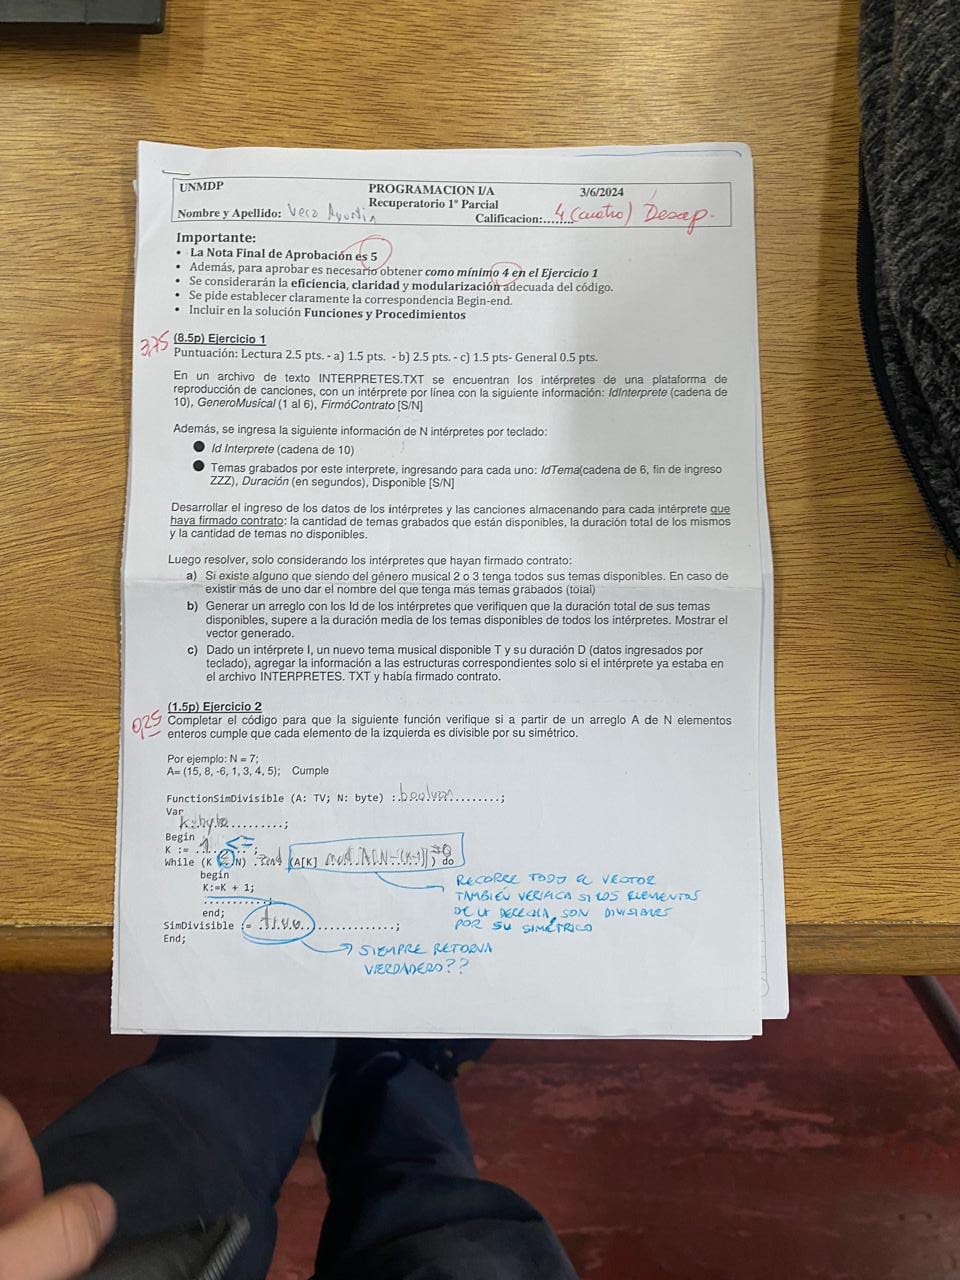 UNMDP PROGRAMACION I/A 3/6/2024
Recuperatorio 1° Parcial
Nombre y Apellido: Vera Agustin Calificacion:....... 4 (cuatro) Desap.
Importante:
• La Nota Final de Aprobación es 5
• Además, para aprobar es necesario obtener como mínimo 4 en el Ejercicio 1
• Se considerarán la eficiencia, claridad y modularización adecuada del código.
• Se pide establecer claramente la correspondencia Begin-end.
• Incluir en la solución Funciones y Procedimientos
3,75 (8.5p) Ejercicio 1
Puntuación: Lectura 2.5 pts. - a) 1.5 pts. - b) 2.5 pts. - c) 1.5 pts- General 0.5 pts.
En un archivo de texto INTERPRETES.TXT se encuentran los intérpretes de una plataforma de
reproducción de canciones, con un intérprete por línea con la siguiente información: IdInterprete (cadena de
10), GeneroMusical (1 al 6), FirmóContrato [S/N]
Además, se ingresa la siguiente información de N intérpretes por teclado:
● Id Interprete (cadena de 10)
● Temas grabados por este interprete, ingresando para cada uno: IdTema(cadena de 6, fin de ingreso
ZZZ), Duración (en segundos), Disponible [S/N]
Desarrollar el ingreso de los datos de los intérpretes y las canciones almacenando para cada intérprete que
haya firmado contrato: la cantidad de temas grabados que están disponibles, la duración total de los mismos
y la cantidad de temas no disponibles.
Luego resolver, solo considerando los intérpretes que hayan firmado contrato:
a) Si existe alguno que siendo del género musical 2 o 3 tenga todos sus temas disponibles. En caso de
existir más de uno dar el nombre del que tenga más temas grabados (total)
b) Generar un arreglo con los Id de los intérpretes que verifiquen que la duración total de sus temas
disponibles, supere a la duración media de los temas disponibles de todos los intérpretes. Mostrar el
vector generado.
c) Dado un intérprete I, un nuevo tema musical disponible T y su duración D (datos ingresados por
teclado), agregar la información a las estructuras correspondientes solo si el intérprete ya estaba en
el archivo INTERPRETES. TXT y había firmado contrato.
(1.5p) Ejercicio 2
0,25 Completar el código para que la siguiente función verifique si a partir de un arreglo A de N elementos
enteros cumple que cada elemento de la izquierda es divisible por su simétrico.
Por ejemplo: N = 7;
A= (15, 8, -6, 1, 3, 4, 5); Cumple
FunctionSimDivisible (A: TV; N: byte) :boolean.........;
Var
k:byte.........;
Begin
K := ..1......; <=
While (K N) and (A[K] mod A[N-(K-1)] =0 ) do
begin
K:=K + 1;
..........;
end;
SimDivisible := .true.............;
End;
RECORRE TODO EL VECTOR
TAMBIÉN VERIFICA SI LOS ELEMENTOS
DE LA DERECHA SON DIVISIBLES
POR SU SIMÉTRICO
SIEMPRE RETORNA
VERDADERO??